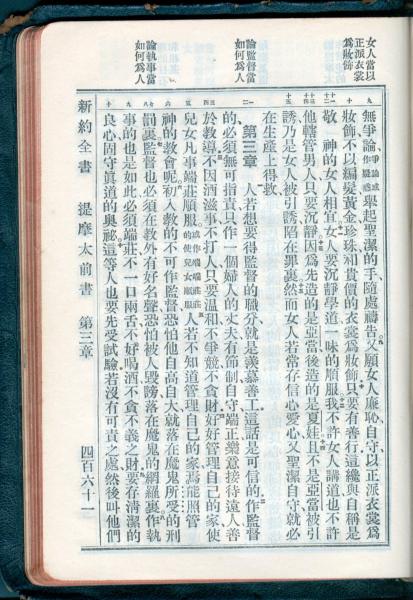 女人當以
正派衣裳
為妝飾
論監督當
如何為人
論執事當
如何為人
無爭論爭論或作疑惑舉起聖潔的手隨處禱告又願女人廉恥自守以正派衣裳為
妝飾不以編髮黃金珍珠和貴價的衣裳為妝飾只要有善行這纔與自稱是
敬 神的女人相宜女人要沉靜學道一味的順服我不許女人講道也不許
他轄管男人只要沉靜因為先造的是亞當後造的是夏娃且不是亞當被引
誘乃是女人被引誘陷在罪裏然而女人若常存信心愛心又聖潔自守就必
在生產上得救
第三章 人若想要得監督的職分就是羨慕善工這話是可信的作監督
的必須無可指責只作一個婦人的丈夫有節制自守端正樂意接待遠人善
於教導不因酒滋事不打人只要溫和不爭競不貪財好好管理自己的家使
兒女凡事端莊順服或作端端莊莊的使兒女順服人若不知道管理自己的家焉能照管
神的教會呢初入教的不可作監督恐怕他自高自大就落在魔鬼所受的刑
罰裏監督也必須在教外有好名聲恐怕被人毀謗落在魔鬼的網羅裏作執
事的也是如此必須端莊不一口兩舌不好喝酒不貪不義之財要存清潔的
良心固守真道的奧祕這等人也要先受試驗若沒有可責之處然後叫他們
新約全書 提摩太前書 第三章 四百六十一